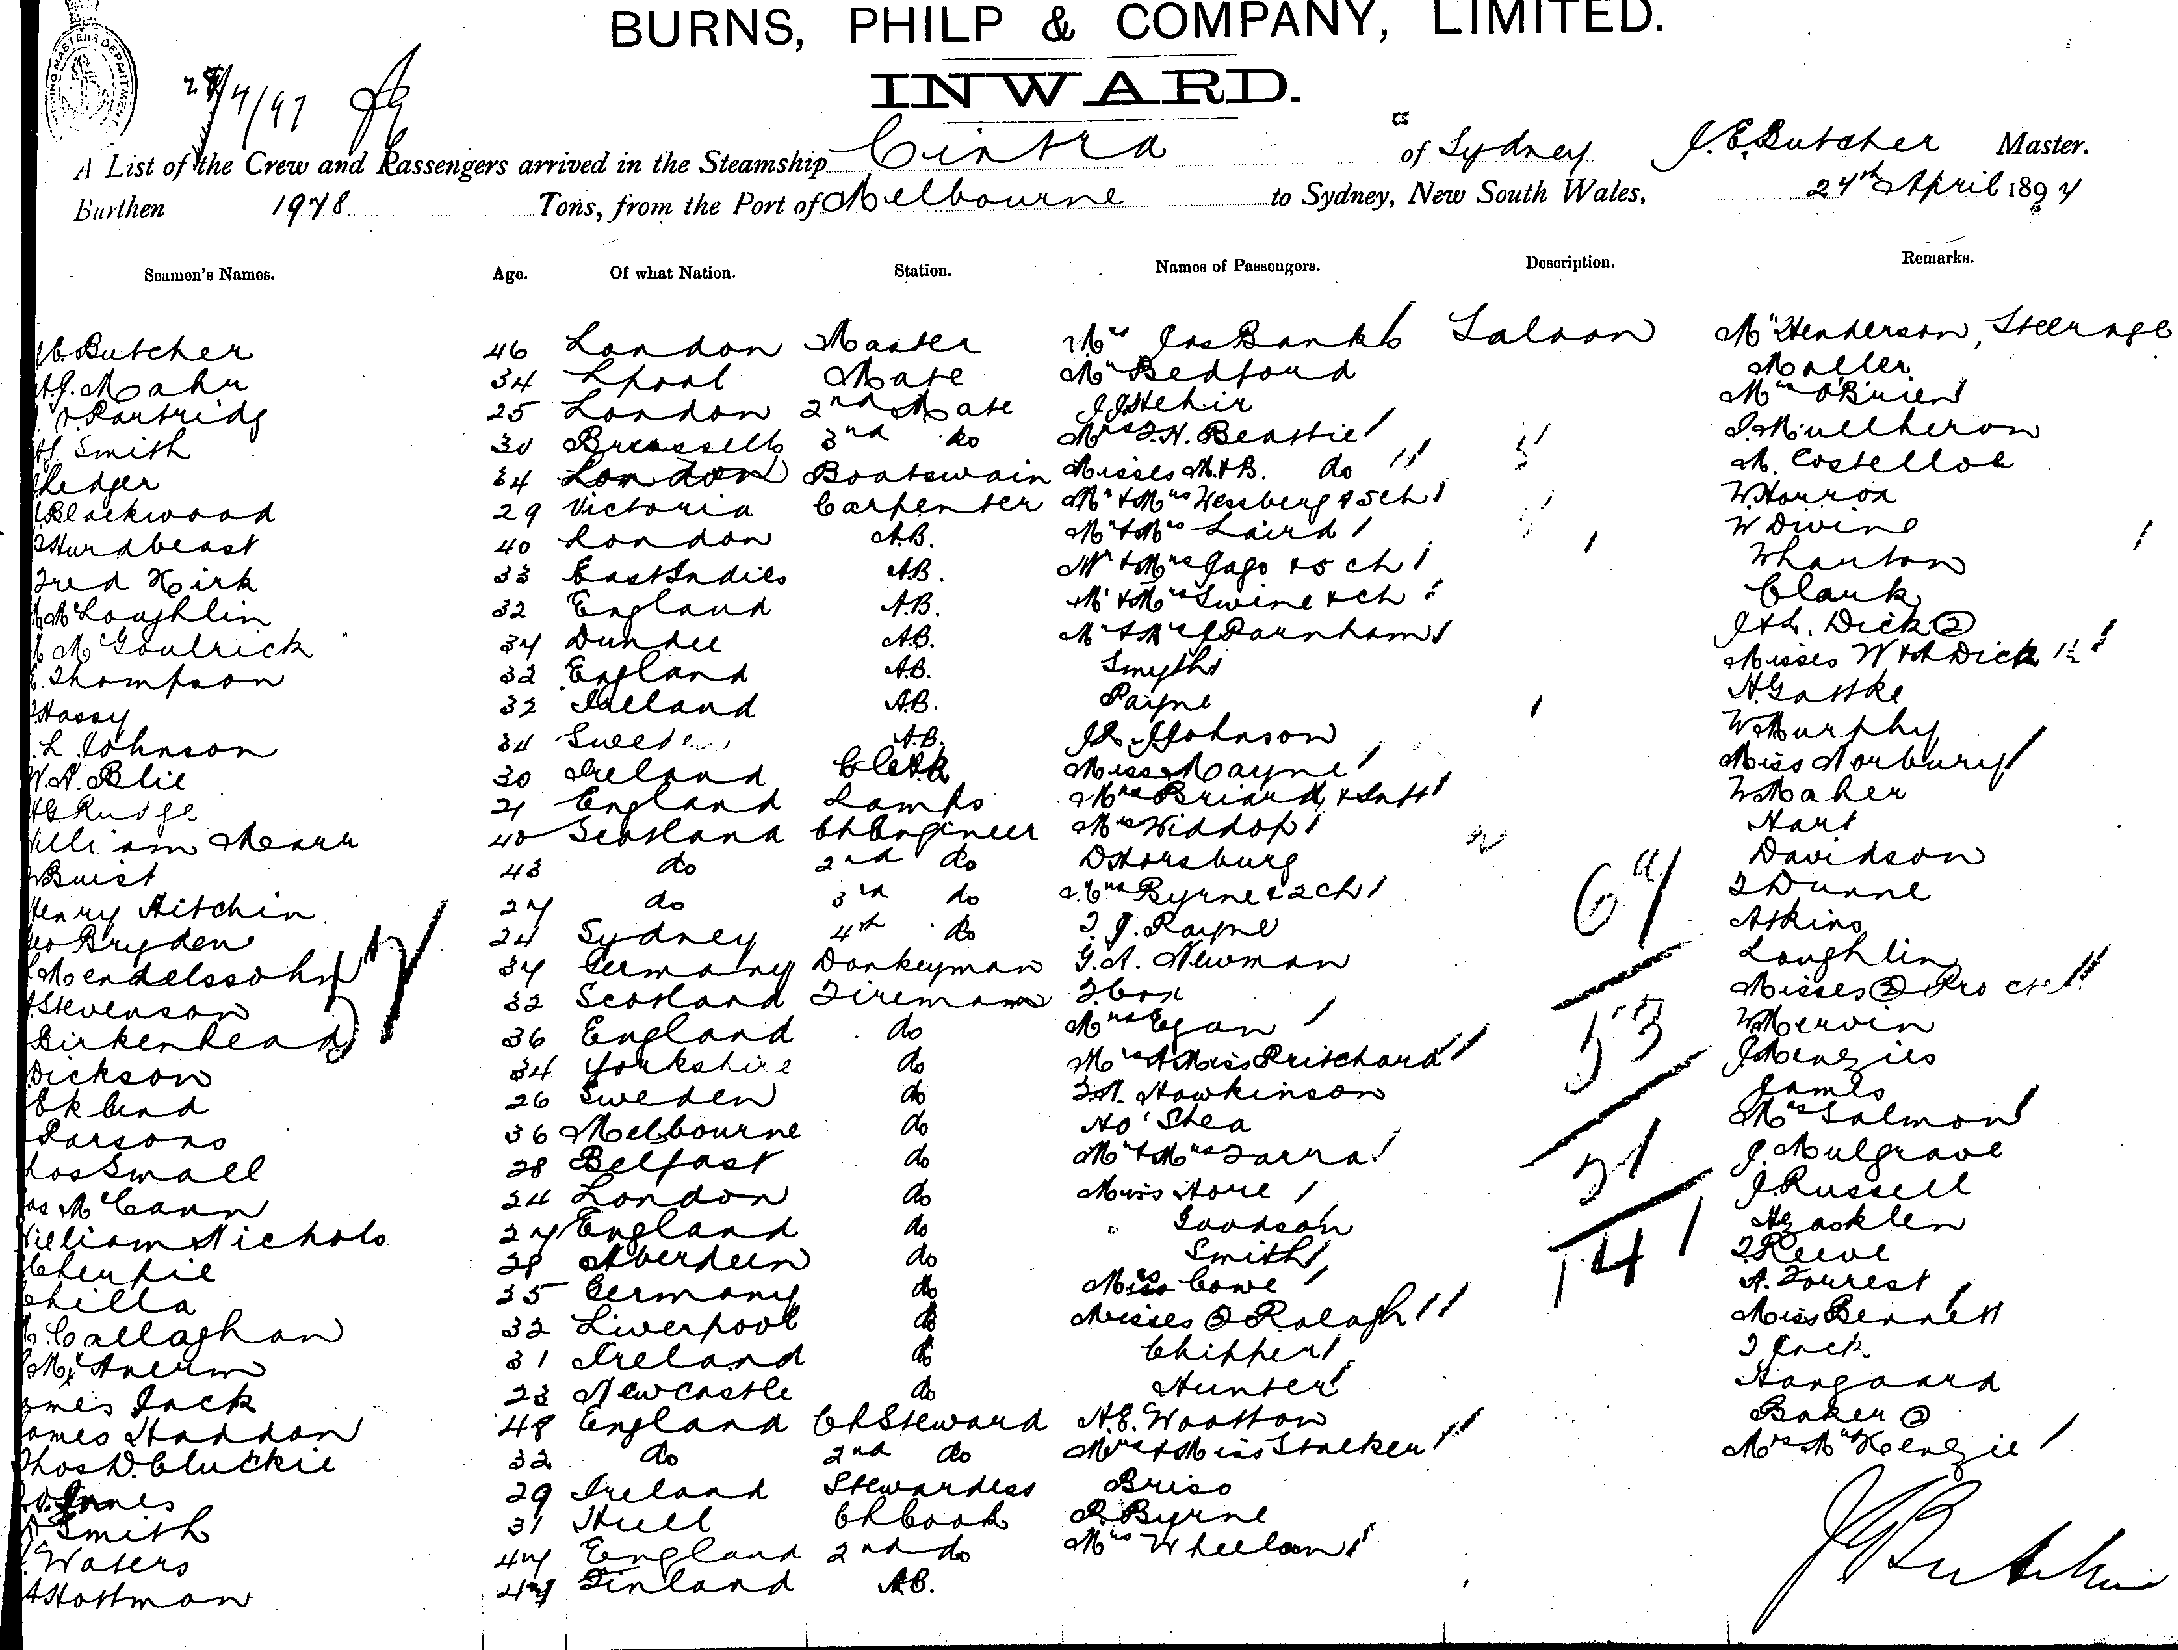 BURNS, PHILP & COMPANY, LIMITED.
INWARD.
A List of the Crew and Passengers arrived in the Steamship Cintra of Sydney J. E. Butcher Master.
Burthen 1978 Tons, from the Port of Melbourne to Sydney, New South Wales, 27th April 1897
Seamen's Names. Age. Of what Nation. Station. Names of Passengers. Description. Remarks.
Butcher 46 London Master Mrs Jas Banks Saloon Mr Henderson, Steerage
34 Lpool Mate Mr Bedford Moller
Partridg 25 London 2nd Mate Mrs O'Brien
Smith 30 Brussells 3rd do Mrs F. H. Beastie J. Mullheron
Ledger 34 London Boatswain Misses M. & B. do M. Costelloe
Blackwood 29 Victoria Carpenter Mr & Mrs Wessberg & 5 ch
Hurdbeast 40 London A.B. Mr & Mrs Laird W Divine
Fred Kirk 33 East Indies A.B. Mr & Mrs Gago & 5 ch Wharton
McLoughlin 32 England A.B. Mr & Mrs Swine & ch Clark
McGoulrick 37 Dundee A.B. Mr & Mrs J Farnham J & L. Dick 2
Thompson 32 England A.B. Smyth Misses W & A Dick 1½
Hassy 32 Ireland A.B. Payne H Gattke
L Johnson 34 Sweden A.B. J. L. Johnson W Murphy
W. A. Blie 30 Ireland Clerk Miss Mayne Miss Norbury
Rudge 21 England Lamps Mrs Briard & Inft W Maher
William Mearr 40 Scotland Ch Engineer Mrs Widdop Hart
Buist 43 do 2nd do D Horsburg Davidson
Henry Aitchin 27 do 3rd do Mrs Byrne & 2 ch J Dunne
Geo Bryden 24 Sydney 4th do F. J. Payne Atkins
Mendelssohn 37 Germany Donkeyman G. A. Newman Loughlin
Stevenson 32 Scotland Fireman J. Cox Misses 2
Birkenhead 36 England do Mrs Egan W Mervin
Dickson 34 Yorkshire do Mrs & Miss Pritchard J Menzies
Eklund 26 Sweden do F. A. Hawkinson James
Parsons 36 Melbourne do H O'Shea Mrs Salmon
Small 28 Belfast do Mr & Mrs Farra J. Mulgrave
McCann 24 London do Miss Hore J. Russell
William Nichols 27 England do Goodson
28 Aberdeen do Smith J. Reeve
35 Germany do Cowe A. Forrest
Callaghan 32 Liverpool do Misses 2 Ralagh Miss Bennett
31 Ireland do Chipper J Jack
James Jack 23 Newcastle do Hunter Hangaard
James Haddon 48 England Ch Steward A. E. Wootton Baker 2
Thos D. Cluckie 32 do 2nd do Mrs & Miss Stalker Mrs McKenzie
Innes 29 Ireland Stewardess Briso
Smith 31 Hull Ch Cook P. Byrne
Waters 47 England 2nd do Mrs Wheelan
Hottman 47 Finland A.B.